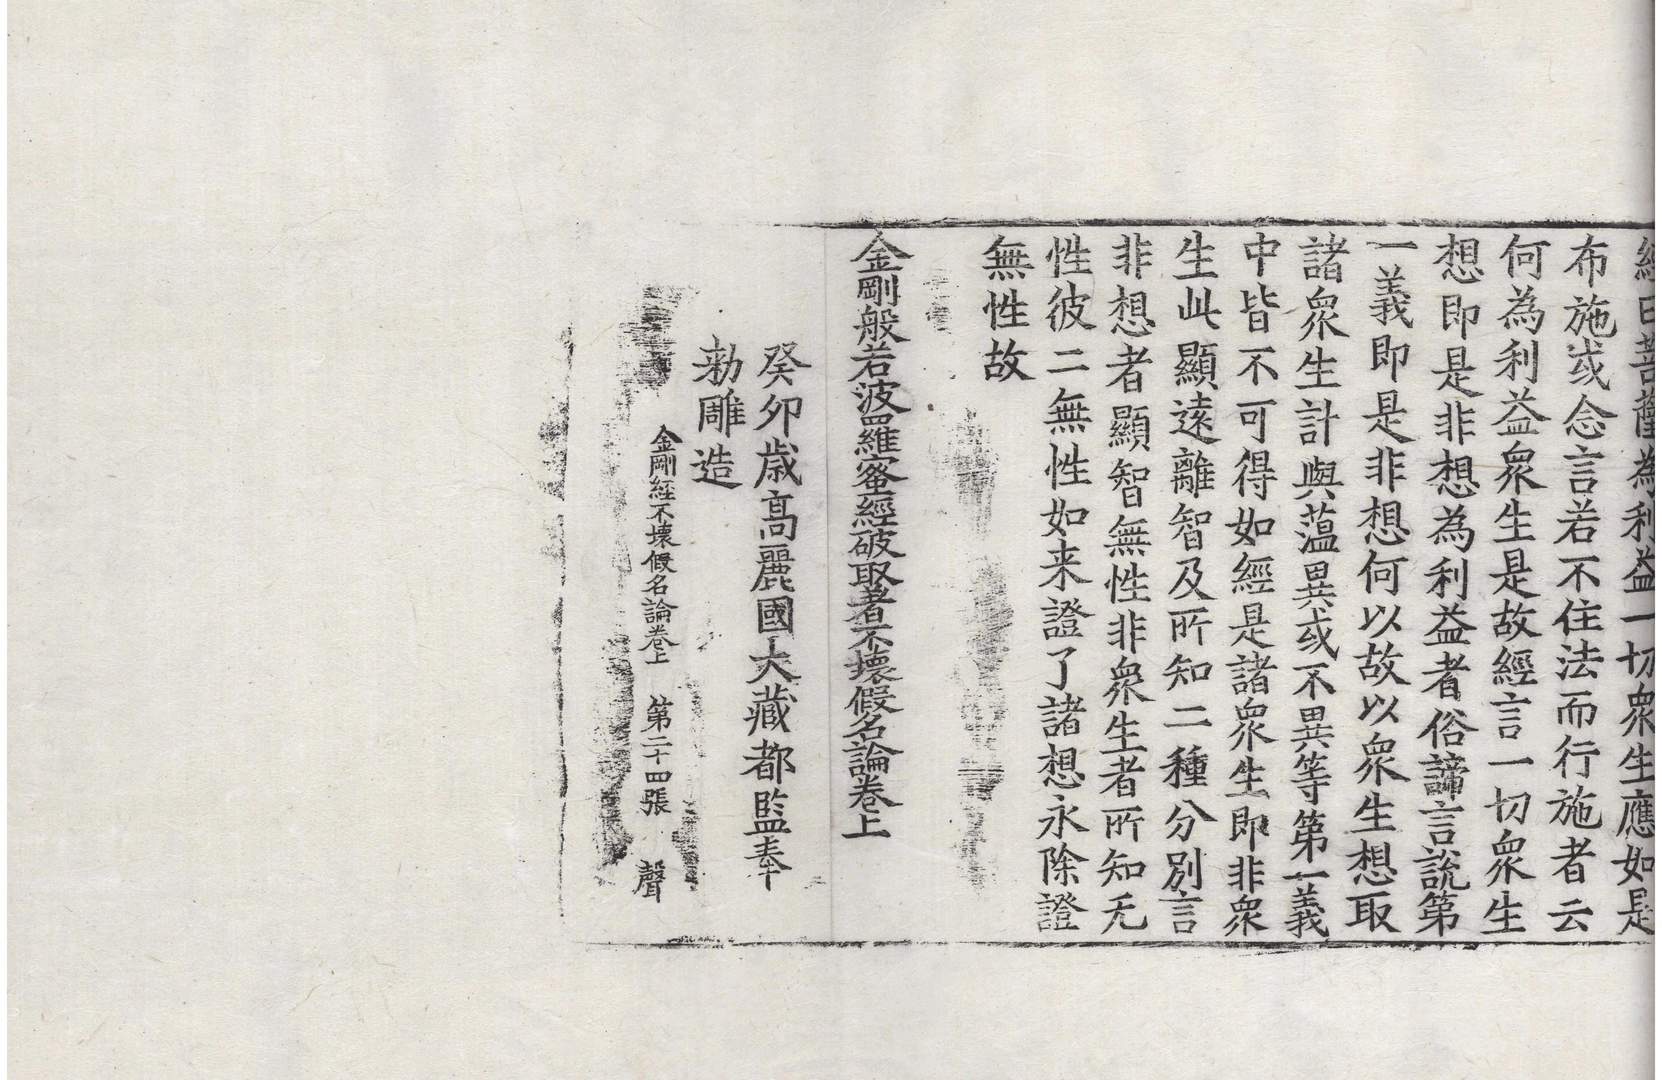 經曰菩薩為利益一切眾生應如是
布施或念言若不住法而行施者云
何為利益眾生是故經言一切眾生
想即是非想為利益者俗諦言說第
一義即是非想何以故以眾生想取
諸眾生計與蘊異或不異等第一義
中皆不可得如經是諸眾生即非眾
生此顯遠離智及所知二種分別言
非想者顯智無性非眾生者所知无
性彼二無性如来證了諸想永除證
無性故
金剛般若波羅蜜經破取著不壞假名論卷上
癸卯歲高麗國大藏都監奉
勑雕造
金剛經不壞假名論卷上 第二十四張 聲